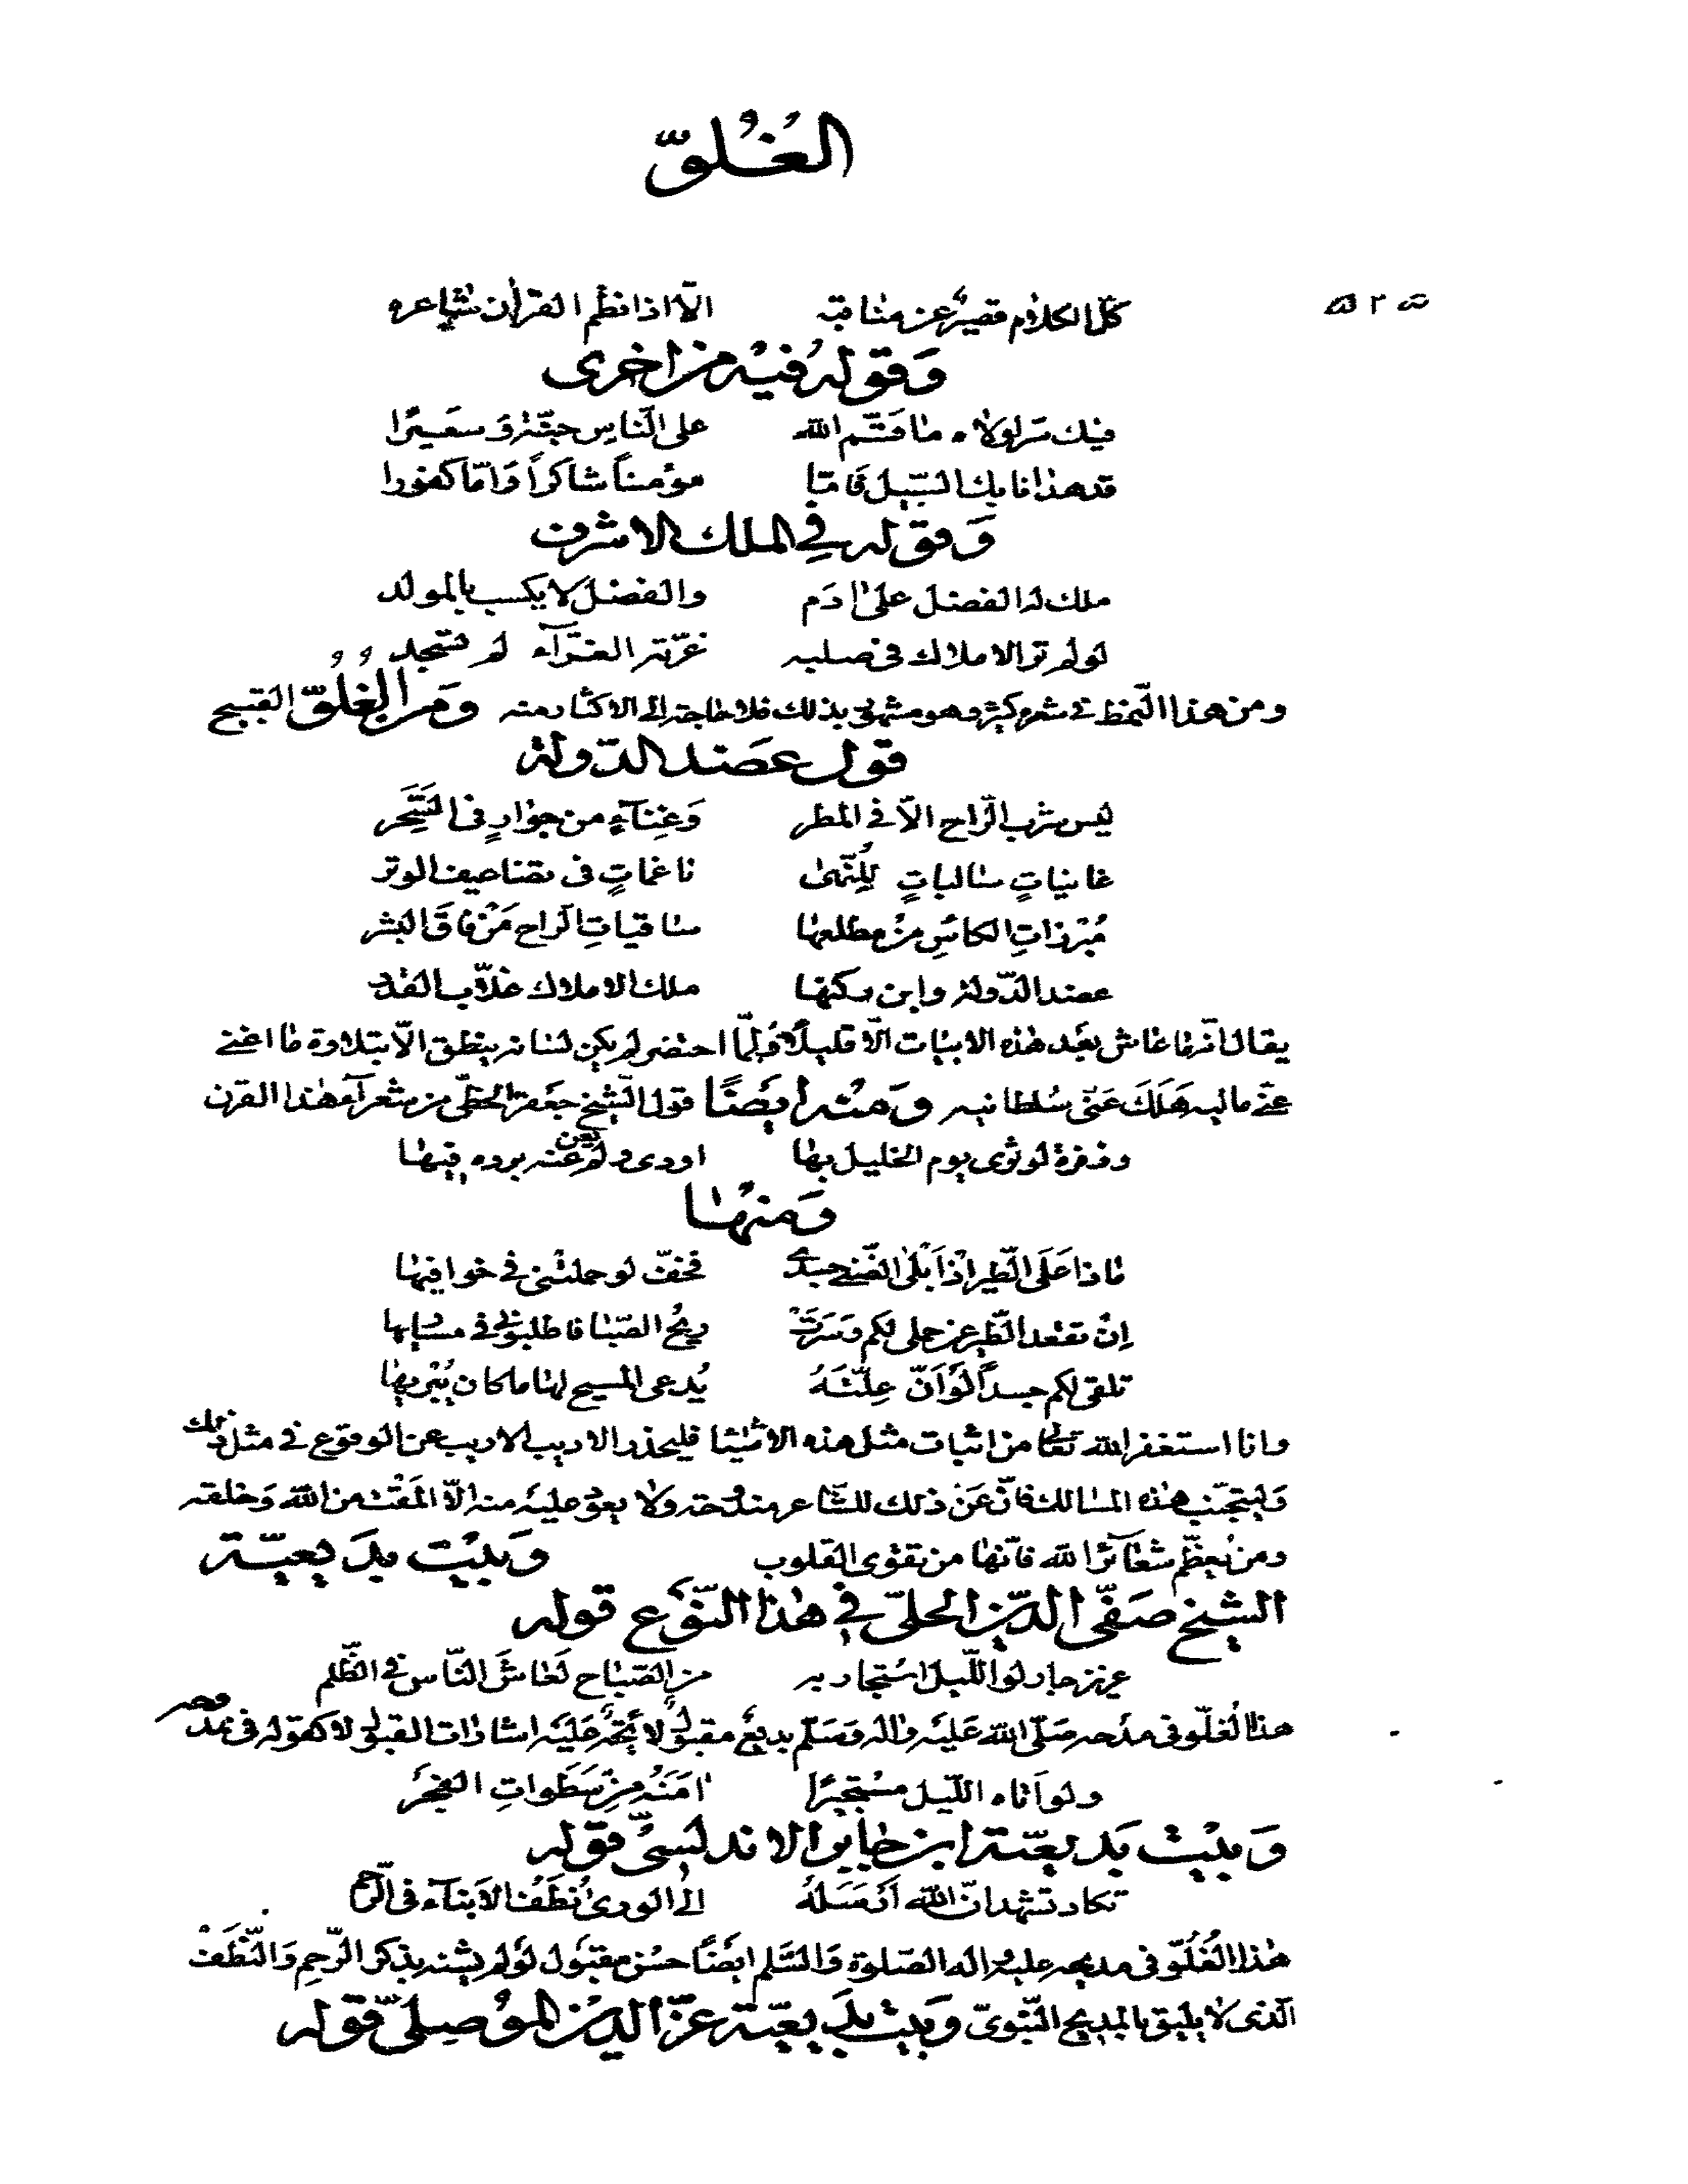 الغُلوّ
كلّ الكلام قصيرٌ عن مناقبه الّا اذا نظم القران شاعره
وَقولهُ فيه من اخرى
فيك سرّ لولاه ما قسّم الله على النّاس جنّة وَ سعيرًا
قد هدانا بك السّبيل فامّا مؤمناً شاكراً وَامّا كفورا
وَقوله فِي الملك الاشرف
ملك له الفضل على ادَم والفضل لا يكسب بالمولد
لو لم تر الاملاك فى صلبه غرّته الغرّآء لم تسجد
ومن هذا النمط فى شعره كثير وهو مشهور بذلك فلا حاجة الى الاكثار منه وَمن الغُلُوّ القبيح
قول عضد الدّولة
ليس شرب الرّاح الّا فى المطر وَغِنآءٍ من جوارٍ فى السَّحَر
غانياتٍ سالباتٍ للنُّهى ناغماتٍ فى تضاعيف الوتر
مُبْرزاتِ الكاسِ من مطلعها ساقياتِ الرّاح مَنْ فاقَ البشر
عضد الدّولة وابن ركنها ملك الاملاك غلّاب القدر
يقال انّه ما عاش بعد هذه الابيات الّا قليلًا وَلمّا احتضر لم يكن لسانه ينطق الّا بتلاوة ما اغنى
عنّى ماليه هَلَكَ عَنّى سُلطانيه وَمنه ايضًا قول الشيخ جعفر الخطّى من شعرآء هذا القرن
وزفرة لو ثوى يوم الخليل بها اودى ولم يغن عنه برده فيها
وَمنها
ماذا عَلَى الطّير اذ اَبْلى الضّنى جسدى فخفّ لو حملتنى فى خوافيها
اِنْ تقعد الطّير عن حملى لكم وَسَرَتْ ريحُ الصّبا فاطلبونى فى مساريها
تلقى لكم جسداً لَوْ اَنّ عِلّتَهُ يُدعى المسيح لها ما كان يُبْريها
وانا استغفر الله تعالى من اثبات مثل هذه الاشيآ فليحذر الاديب الاريب عن الوقوع فى مثل ذلك
وَليتجنّب هذه المسالك فانّ عَنْ ذلك للشّاعر مندوحة ولا يعود عليه منه الّا المَقْت من الله وَخلقه
ومن يُعظّم شعآئر الله فانّها من تقوى القلوب وَبيت بديعيّة
الشيخ صَفىّ الدّين الحلىّ فِي هذا النّوع قوله
عزيز جار لو اللّيل استجار به من الصّباح لَعاشَ النّاس فى الظّلم
هذا الغلّو فى مدحه صَلّى الله عَليْه واله وَسَلّم بديعٌ مقبولٌ لا يُنكر عَليْه اشارات القبول لا كقوله فى ممدوحه
ولو اَتاه اللّيل مُسْتجيرًا امَنَهُ مِنْ سَطَواتِ الفجر
وَبيْت بَديعيّة ابن جابر الاندلسىّ قوله
تكاد تشهد انّ اللهَ اَرْسَلَهُ الى الورى نُطَفُ الابنآء فى الرّحم
هذا الغُلُوّ فى مديحه عليه واله الصّلوة وَالسّلم ايضًا حسن مقبول لَوْ لم يشنه بذكر الرّحِم وَالنّطَف
الّذى لا يليق بالمديح النّبوىّ وَبيت بديعيّة عزّ الدّين الموْصلىّ قوله